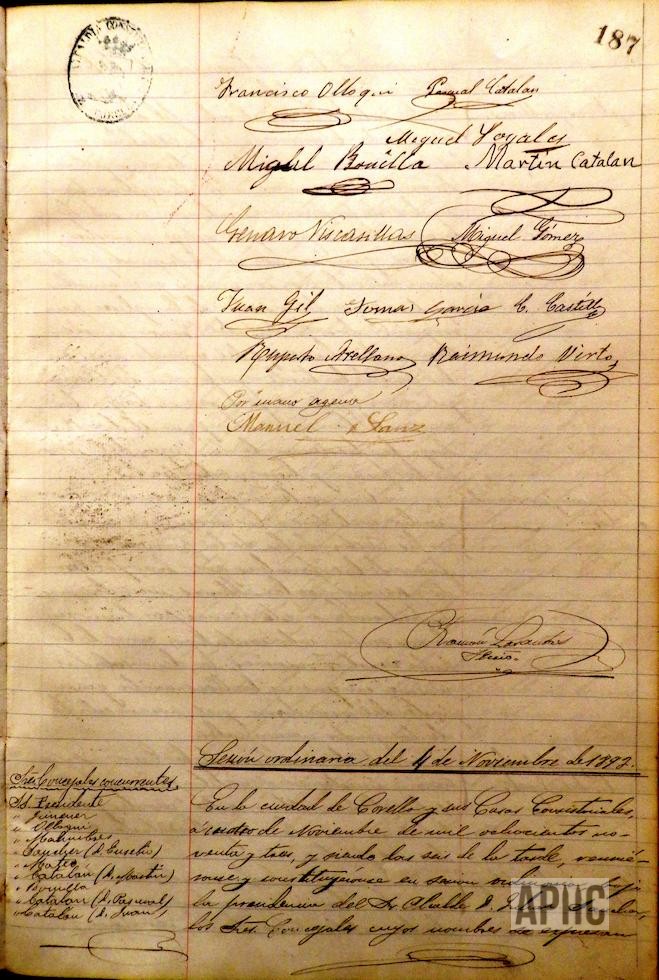 187
ALCALDIA CONST
Francisco Olloqui Pascual Catalan
Miguel
Miguel Bonilla Martin Catalan
Genaro Viscasillas Miguel Gómez
Juan Gil Tomas Garcia C. Castillo
Ruperto Arellano Raimundo Virto
Por mano agena
Manuel Sanz
Ramón
Srio.
Sesión ordinaria del 4 de Noviembre de 1893.
Sres. Concejales concurrentes
Sr. Presidente
" Jimenez
" Olloqui
"
Sanchez (d. Eusebio)
" Mateo
" Catalan (d. Martin)
" Bonilla
" Catalan (d. Pascual)
" Catalan (d. Juan)
En la ciudad de Corella y sus Casas Consistoriales,
á cuatro de Noviembre de mil ochocientos no-
venta y tres, y siendo las seis de la tarde, reunié-
ronse y constituyéronse en sesión ordinaria bajo
la presidencia del Sr. Alcalde D.
los Sres. Concejales cuyos nombres se espresan
APHC